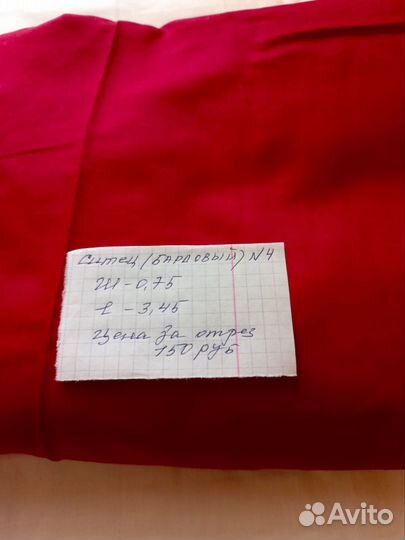 Ситец (БАРДОВЫЙ) N4
Ш - 0,75
L - 3,45
Цена за отрез
150 руб
Avito